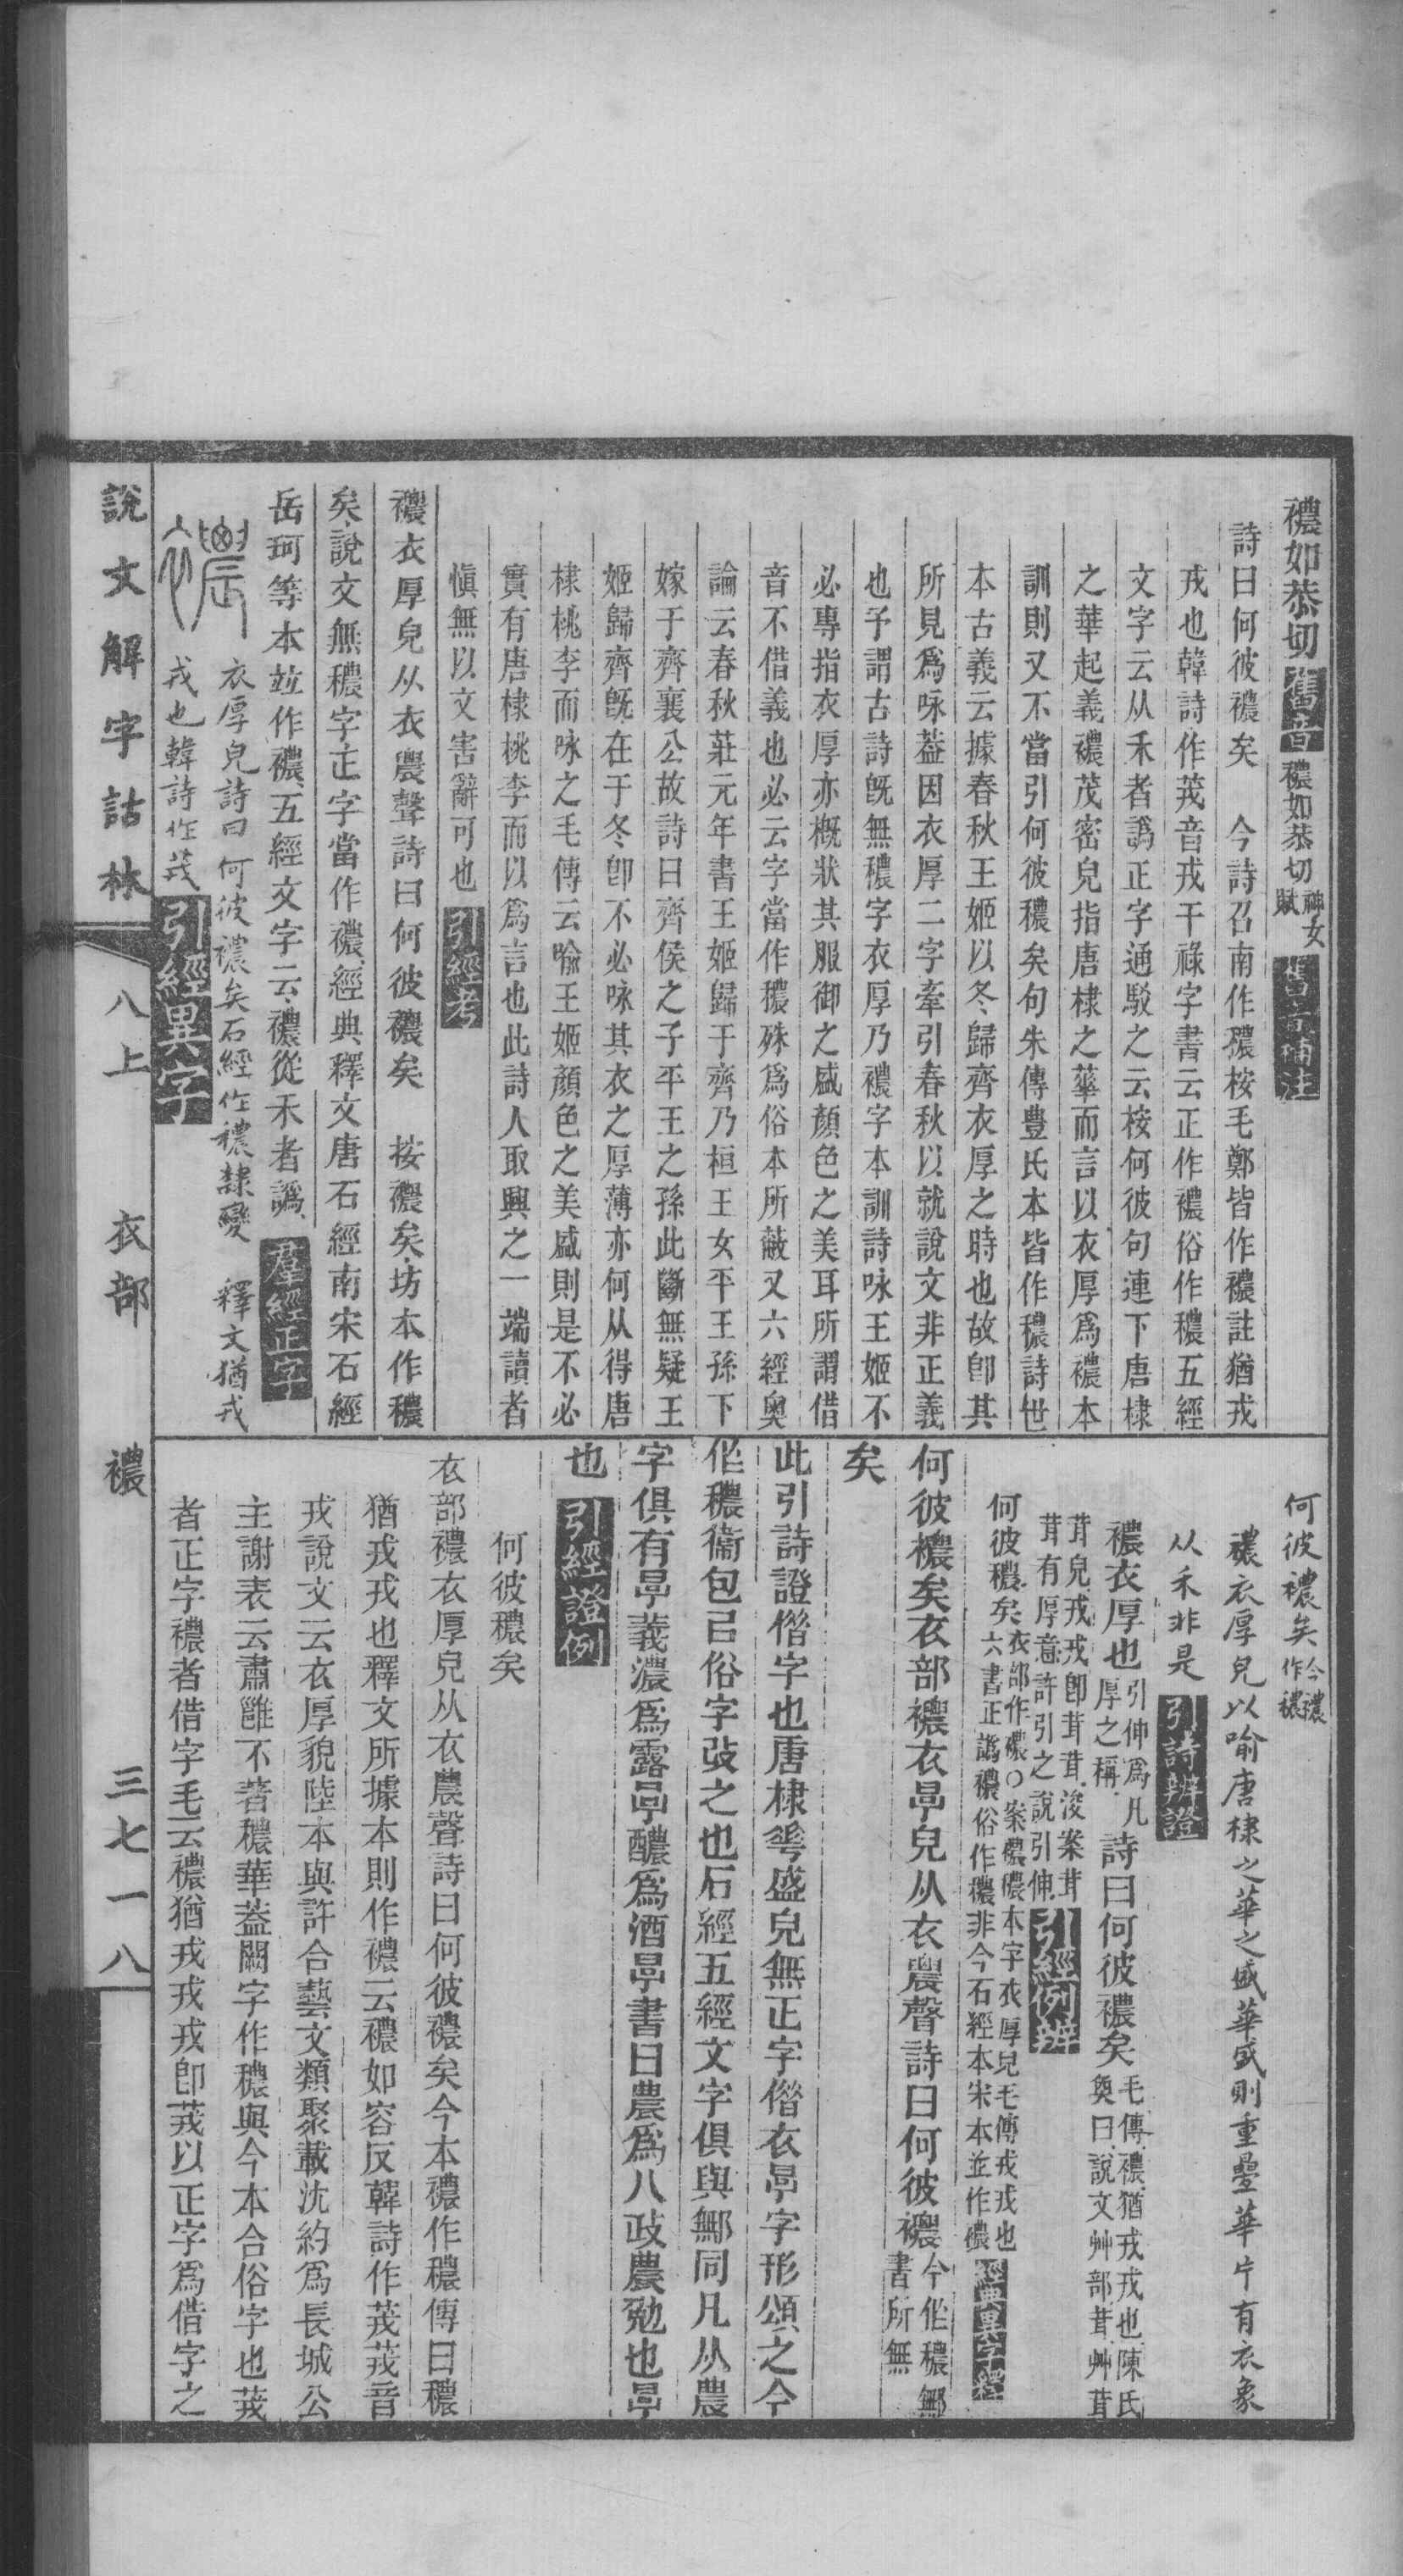 襛如恭切 舊音 襛如恭切神女賦 舊音補注
詩曰何彼襛矣 今詩召南作穠桉毛鄭皆作襛註猶戎
戎也韓詩作茙音戎干祿字書云正作襛俗作穠五經
文字云从禾者譌正字通駁之云桉何彼句連下唐棣
之華起義襛茂密皃指唐棣之華而言以衣厚爲襛本
訓則又不當引何彼穠矣句朱傳豊氏本皆作穠詩世
本古義云據春秋王姬以冬歸齊衣厚之時也故卽其
所見爲咏葢因衣厚二字牽引春秋以就說文非正義
也予謂古詩旣無穠字衣厚乃襛字本訓詩咏王姬不
必專指衣厚亦概狀其服御之盛顏色之美耳所謂借
音不借義也必云字當作穠殊爲俗本所蔽又六經奧
論云春秋莊元年書王姬歸于齊乃桓王女平王孫下
嫁于齊襄公故詩曰齊侯之子平王之孫此斷無疑王
姬歸齊旣在于冬卽不必咏其衣之厚薄亦何从得唐
棣桃李而咏之毛傳云喻王姬顏色之美盛則是不必
實有唐棣桃李而以爲言也此詩人取興之一端讀者
愼無以文害辭可也 引經考
襛衣厚皃从衣農聲詩曰何彼襛矣 按襛矣坊本作穠
矣說文無穠字正字當作襛經典釋文唐石經南宋石經
岳珂等本竝作襛五經文字云襛從禾者譌 羣經正字
衣厚皃詩曰何彼襛矣石經作襛隸變 釋文猶戎
戎也韓詩作茙 引經異字
說文解字詁林 八上 衣部 襛 三七一八
何彼襛矣今襛作穠
襛衣厚皃以喻唐棣之華之盛華盛則重疊華片有衣象
从禾非是 引詩辨證
襛衣厚也引伸爲凡厚之稱詩曰何彼襛矣毛傳襛猶戎戎也陳氏奐曰說文艸部茸艸茸
茸皃戎戎卽茸茸浚案茸茸有厚意許引之說引伸 引經例辨
何彼穠矣衣部作襛○案襛襛本字衣厚皃毛傳戎戎也六書正譌襛俗作穠非今石經本宋本並作襛 經典異字釋
何彼襛矣衣部襛衣㫗皃从衣農聲詩曰何彼襛今作穠鄦書所無
矣
此引詩證借字也唐棣𠌶盛皃無正字借衣㫗字形頌之今
作穠衞包㠯俗字改之也石經五經文字俱與鄦同凡从農
字俱有㫗義濃爲露㫗醲爲酒㫗書曰農爲八政農勉也㫗
也 引經證例
何彼穠矣
衣部襛衣厚皃从衣農聲詩曰何彼襛矣今本襛作穠傳曰穠
猶戎戎也釋文所據本則作襛云襛如容反韓詩作茙茙音
戎說文云衣厚貌陸本與許合藝文類聚載沈約爲長城公
主謝表云肅雝不著穠華葢闕字作穠與今本合俗字也茙
者正字襛者借字毛云襛猶戎戎戎卽茙以正字爲借字之